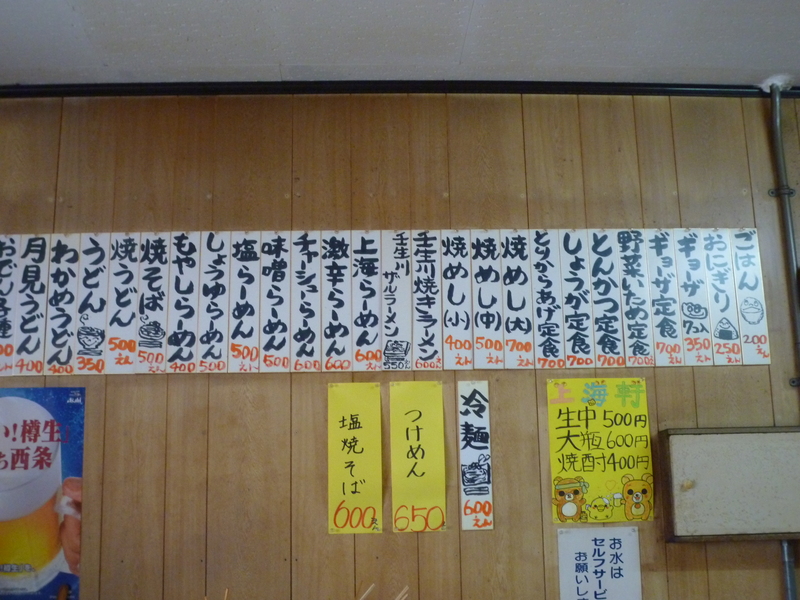 ごはん 200えん
おにぎり 250えん
ギョーザ 7コ入 350えん
ギョーザ定食 700えん
野菜いため定食 700えん
とんかつ定食 700
しょうが定食 700
とりからあげ定食 700
焼めし(大) 700えん
焼めし(中) 500えん
焼めし(小) 400えん
壬生川焼きラーメン 600えん
壬生川ザルラーメン 550えん
上海らーめん 600えん
激辛らーめん 600
チャーシューらーめん 600
味噌らーめん 500
塩らーめん 500えん
しょうゆらーめん 500
もやしらーめん 400
焼そば 500えん
焼うどん 500えん
うどん 350
わかめうどん 400
月見うどん 400
おでん各種
冷麺 600えん
つけめん 650えん
塩焼そば 600えん
上海村
生中 500円
大瓶 600円
焼酎 400円
お水は
セルフサービ
お願いしま
い!樽生
西条
Asahi